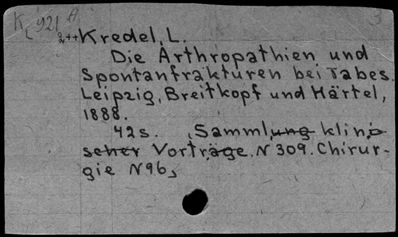 K 921 A
3
2++ Kredel, L.
Die Arthropathien und
Spontanfrakturen bei Tabes.
Leipzig, Breitkopf und Härtel,
1888.
42s. Sammlung klini
scher Vorträge. N 309. Chirur-
gie N96,